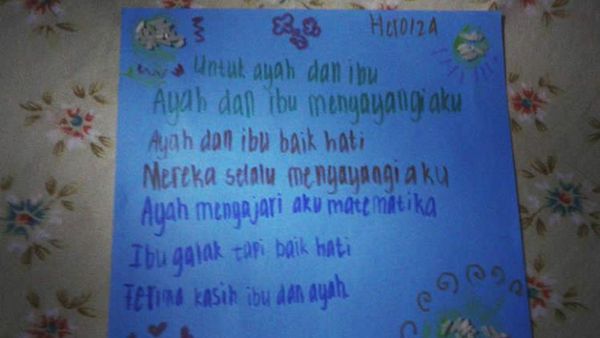 Untuk ayah dan ibu
Ayah dan ibu menyayangi aku
Ayah dan ibu baik hati
Mereka selalu menyayangi aku
Ayah mengajari aku matematika
Ibu galak tapi baik hati
Terima kasih ibu dan ayah